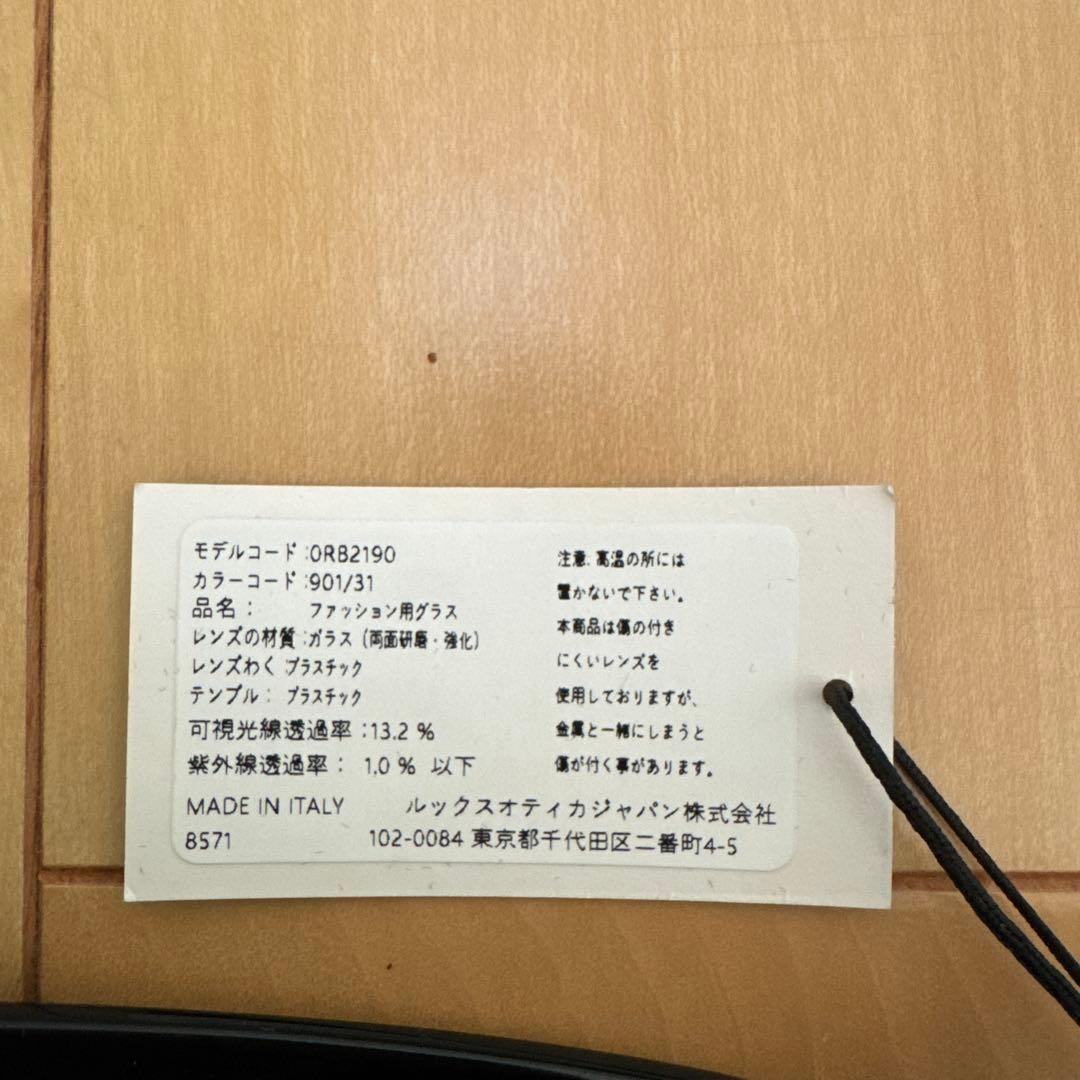 モデルコード:0RB2190
カラーコード:901/31
品名: ファッション用グラス
レンズの材質:ガラス (両面研磨・強化)
レンズわく プラスチック
テンプル: プラスチック
可視光線透過率:13.2 %
紫外線透過率: 1.0 % 以下
注意: 高温の所には
置かないで下さい。
本商品は傷の付き
にくいレンズを
使用しておりますが、
金属と一緒にしまうと
傷が付く事があります。
MADE IN ITALY ルックスオティカジャパン株式会社
8571 102-0084 東京都千代田区二番町4-5